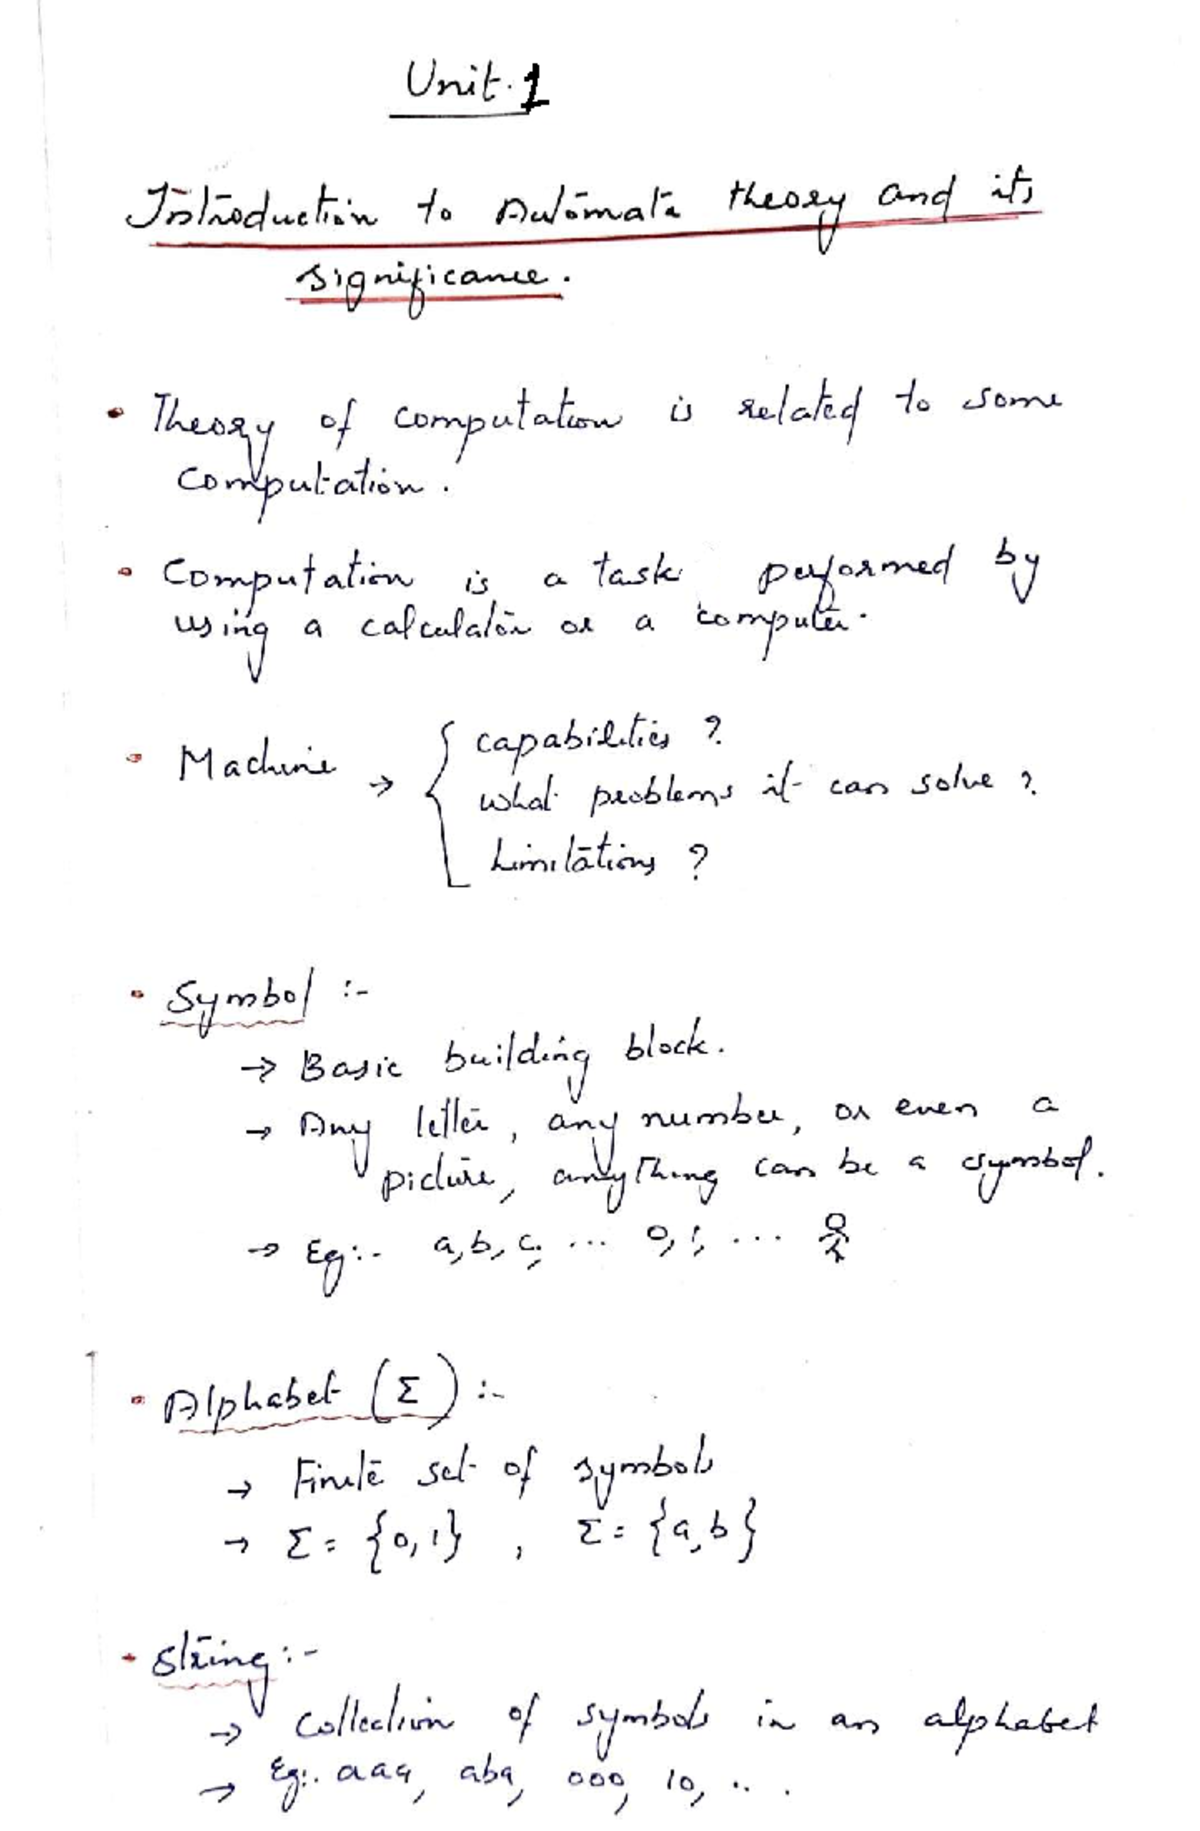 Unit.1
Introduction to Automata theory and its
significance.
• Theory of computation is related to some
computation.
• Computation is a task performed by
using a calculator or a computer.
• Machine → { capabilities ?
what problems it can solve ?
Limitations ?
• Symbol :-
→ Basic building block.
→ Any letter, any number, or even a
picture, anything can be a symbol.
→ Eg:- a, b, c, ... 0, 1, ...
• Alphabet (Σ) :-
→ Finite set of symbols
→ Σ = {0, 1} , Σ = {a, b}
• String :-
→ Collection of symbols in an alphabet
→ Eg:. aaa, aba, 000, 10, ...